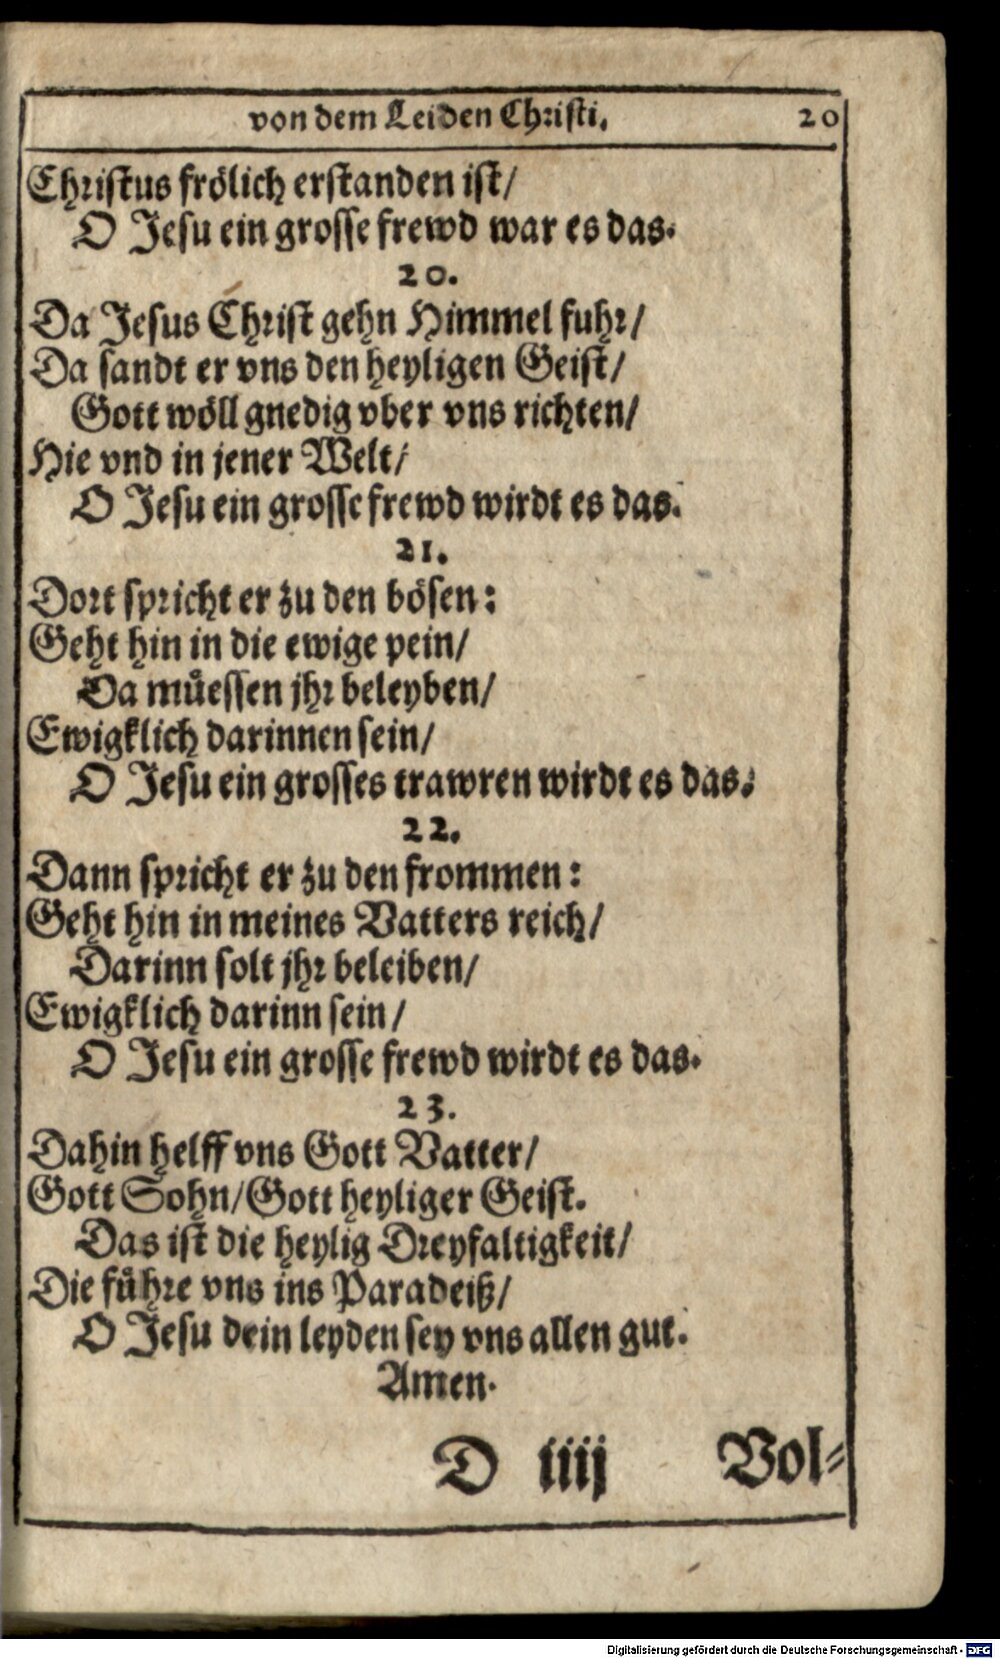 von dem Leiden Christi. 20
Christus frölich erstanden ist/
O Jesu ein grosse frewd war es das.
20.
Da Jesus Christ gehn Himmel fuhr/
Da sandt er vns den heyligen Geist/
Gott wöll gnedig vber vns richten/
Hie vnd in jener Welt/
O Jesu ein grosse frewd wirdt es das.
21.
Dort spricht er zu den bösen:
Geht hin in die ewige pein/
Da muͤessen jhr beleyben/
Ewigklich darinnen sein/
O Jesu ein grosses trawren wirdt es das.
22.
Dann spricht er zu den frommen:
Geht hin in meines Vatters reich/
Darinn solt jhr beleiben/
Ewigklich darinn sein/
O Jesu ein grosse frewd wirdt es das.
23.
Dahin helff vns Gott Vatter/
Gott Sohn/Gott heyliger Geist.
Das ist die heylig Dreyfaltigkeit/
Die fuͤhre vns ins Paradeiß/
O Jesu dein leyden sey vns allen gut.
Amen.
D iiij Vol-
Digitalisierung gefördert durch die Deutsche Forschungsgemeinschaft - DFG